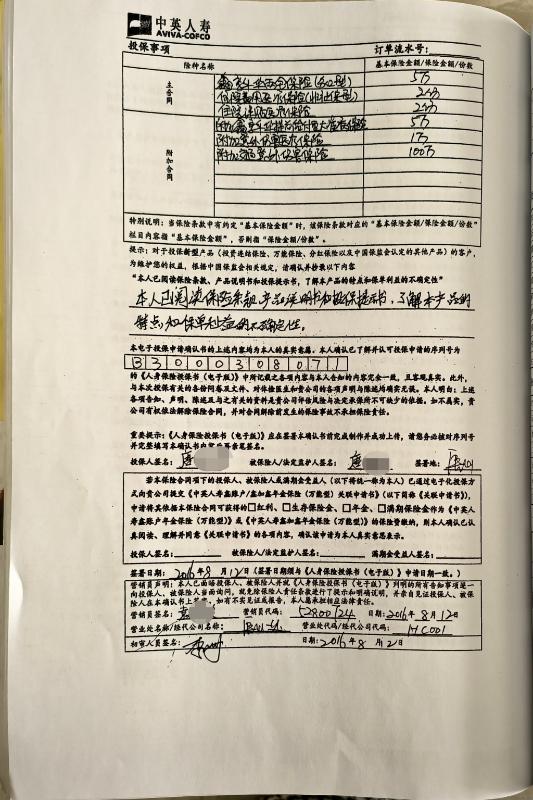 中英人寿
AVIVA-COFCO
投保事项 订单流水号：
险种名称 基本保险金额/保险金额/份数
主合同
5万
5万
1万
附加意外伤害医疗保险
100万
附加合同
特别说明：当保险条款中有约定“基本保险金额”时，该保险条款对应的“基本保险金额/保险金额/份数”
栏目内容指“基本保险金额”，否则指“保险金额/份数”。
提示：对于投保新型产品（投资连结保险、万能保险、分红保险以及中国保监会认定的其他产品）的客户，
为维护您的权益，根据中国保监会相关规定，请确认并抄录以下内容
“本人已阅读保险条款、产品说明书和投保提示书，了解本产品的特点和保单利益的不确定性”
本人已阅读保险条款、产品说明书和投保提示书，了解本产品的
特点和保单利益的不确定性。
本电子投保申请确认书的上述内容均为本人的真实意愿。本人确认已了解并认可投保申请的序列号为
B33000308071
的《人身保险投保书（电子版）》中所记载之各项内容与本人告知的内容完全一致，且客观真实。此外，
与本次投保有关的各份问卷及文件、对体检医生和贵公司的各项声明与陈述均确实无误。本人明白：上述
各项告知、声明、陈述及与之有关的资料是贵公司评估风险与决定承保所不可缺少的依据。如不属实，贵
公司有权依法解除保险合同，并对合同解除前发生的保险事故不承担保险责任。
重要提示：《人身保险投保书（电子版）》应在签署本确认书前完成制作并成功上传，请您务必核对序列号
并完整填写本确认书内容后亲笔签名。
投保人签名： 被保险人/法定监护人签名： 签署地：
若本保险合同项下的投保人、被保险人或满期金受益人（以下将统一称为本人）已通过电子化投保方
式向贵公司提交《中英人寿鑫账户/鑫加鑫年金保险（万能型）关联申请书》（以下简称《关联申请书》），
申请将其依据本保险合同可获得的□红利、□生存保险金、□年金、□满期保险金作为《中英人
寿鑫账户年金保险（万能型）》或《中英人寿鑫加鑫年金保险（万能型）》的保险费缴纳，则本人确认已认
真阅读、理解并同意《关联申请书》的各项内容，确认该申请为本人真实意愿表示。
投保人签名： 被保险人/法定监护人签名： 满期金受益人签名：
签署日期：2016年8月12日（签署日期须与《人身保险投保书（电子版）》申请日期一致。）
营销员声明：本人已面晤投保人、被保险人并就《人身保险投保书（电子版）》列明的所有告知事项逐一
向投保人、被保险人当面询问，就免除保险人责任条款进行了提示和明确说明，并亲自见证投保人、被保
险人在本确认书上签名，如有不实见证或报告，本人愿承担相应法律责任。
营销员签名： 营销员代码：52800124 日期：2016年8月12日
营业处名称/经代公司名称： 营业处代码/经代公司代码：HC001
初审人员签名： 日期：2016年8月12日